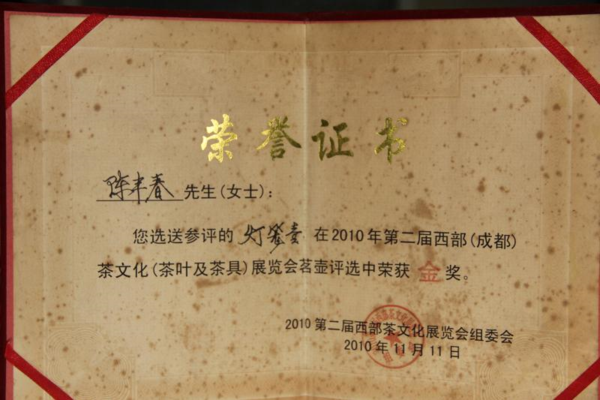 荣誉证书
陈丰春 先生(女士):
您选送参评的 灯笼壶 在2010年第二届西部(成都)
茶文化(茶叶及茶具)展览会茗壶评选中荣获 金 奖。
2010第二届西部茶文化展览会组委会
2010年11月11日